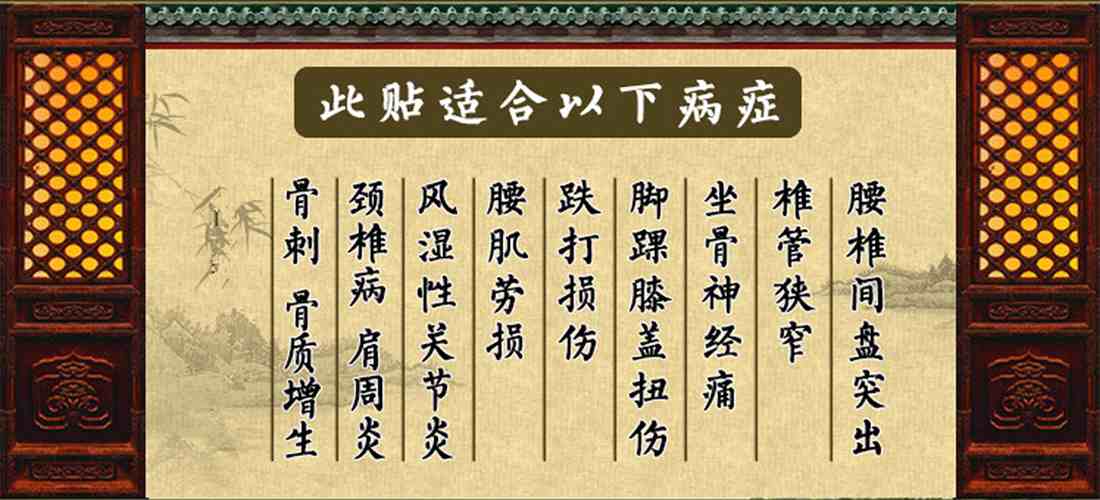 此贴适合以下病症
腰椎间盘突出
椎管狭窄
坐骨神经痛
脚踝膝盖扭伤
跌打损伤
腰肌劳损
风湿性关节炎
颈椎病 肩周炎
骨刺 骨质增生